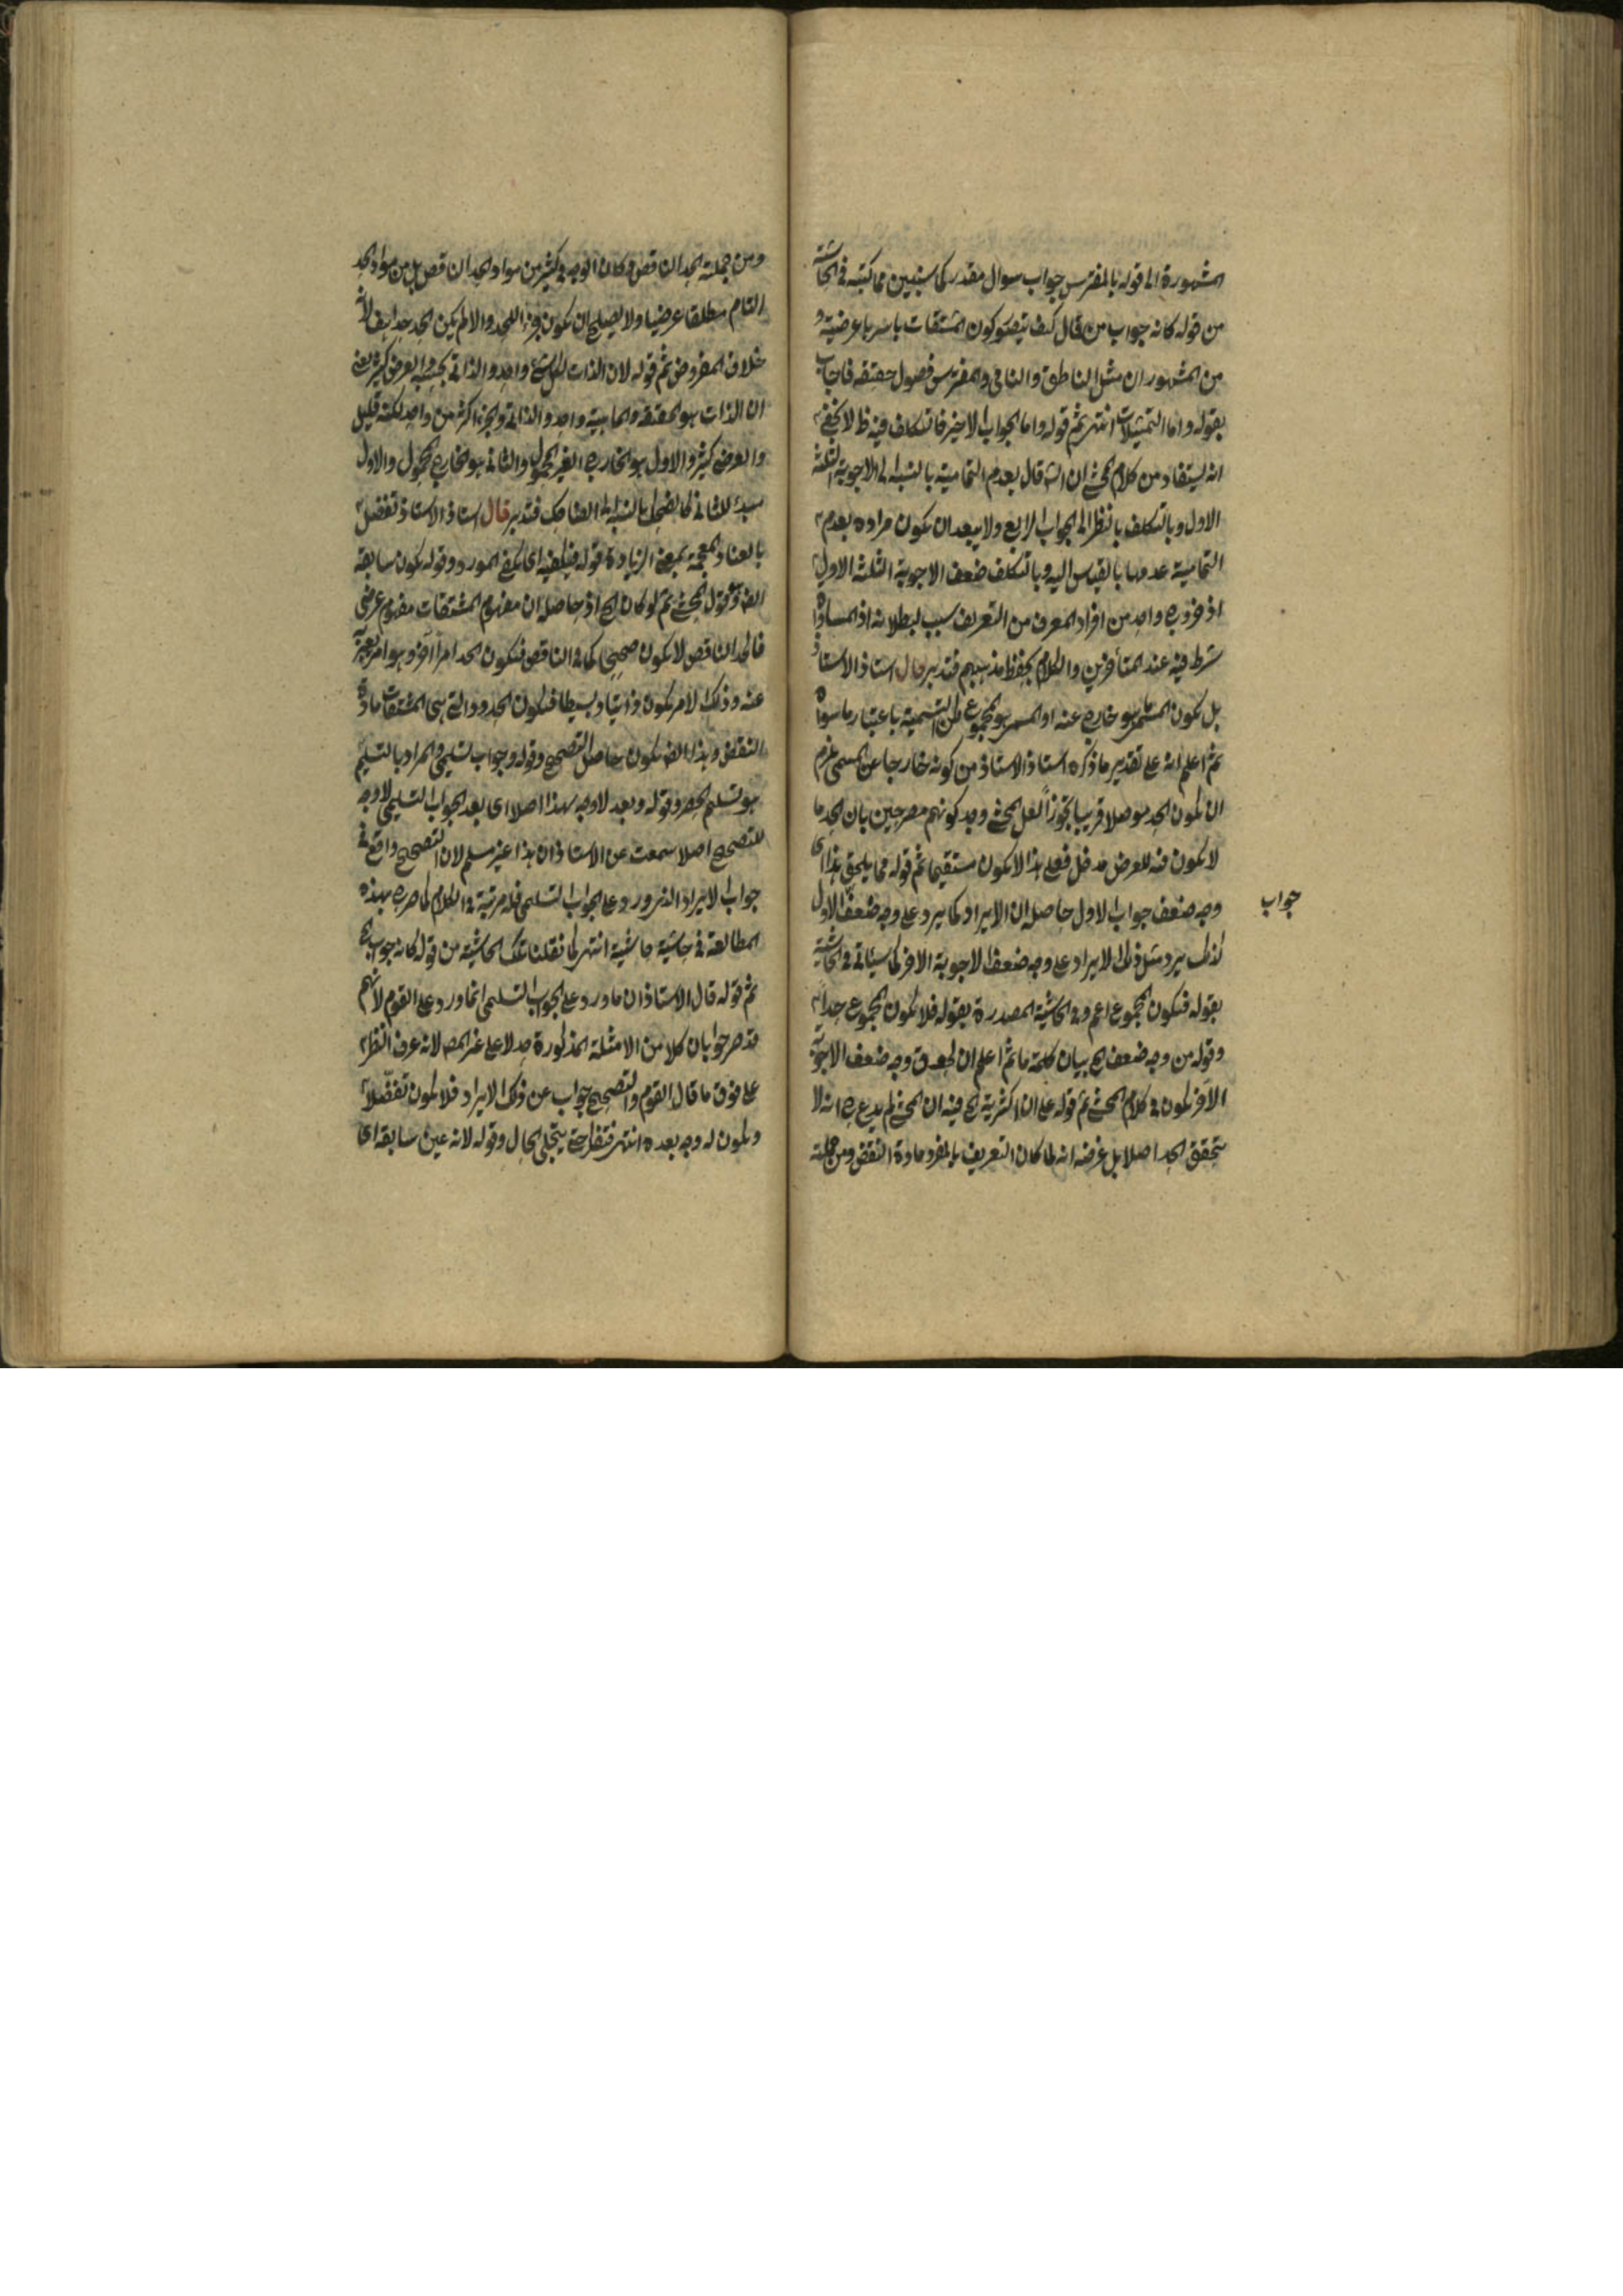 المشهورة الى قوله بالمفترس جواب سوال مقدر كما سنبين مما كتبه فى الحاشية
من قوله كانه جواب من قال كيف يتصور كون المشتقات باسرها عرضية و
من المشهور ان مثل الناطق والنامى والمفترس فصول حقيقة فاجاب
بقوله واما التمثيلات انتهى ثم قوله واما الجواب الاخير فالتكلف فيه ظ لا يخفى
انه يستفاد من كلام المحشى ان الش قال بعدم التمامية بالنسبة الى الاجوبة الثلثة
الاول وبالتكلف بالنظر الى الجواب الرابع ولا يبعد ان يكون مراده بعدم
التمامية عدمها بالقياس اليه وبالتكلف ضعف الاجوبة الثلثة الاول
اذ خروج واحد من افراد المعرف من التعريف سبب لبطلانه اذ المساواة
شرط فيه عند المتأخرين والكلام بحفظ مذهبهم فتدبر قال استاذ الاستاذ
بل يكون المستمر هو خارج عنه او المسمى هو المجموع لكن التسمية باعتبار ما سواه
ثم اعلم انه على تقدير ما ذكره استاذ الاستاذ من كونه خارجا عن المسمى يلزم
ان يكون الحد موصلا قريبا تجوزاً لعل المحشى وجد كونهم مصرحين بان الحد ما
لا يكون فيه للعرض مدخل فعلى هذا لا يكون مستقيما ثم قوله مما يلحق بهذا اى
وجه ضعف جواب الاول حاصله ان الايراد كما يرد على وجه ضعف الاول
جواب
كذلك يرد مثل ذلك الايراد على وجه ضعف الاجوبة الاخر كما سيأتى فى الحاشية
بقوله فيكون المجموع اعم وفى الحاشية المصدرة بقوله فلا يكون المجموع حداً
وقوله من وجه ضعف الخ بيان كلمة ما ثم اعلم ان وجه ضعف الاجوبة
الآخر يكون فى كلام المحشى ثم قوله على ان اكثرية الخ فيه ان المحشى لم يدع انه لا
يتحقق الحد اصلا بل غرضه انه لما كان التعريف بالمفرد مادة النقض ومن جملته
ومن جملته الحد الناقص وكان الوجه فى كثير من مواد الحد الناقص بل من مواد الحد
التام مطلقا عرضيا ولا يصلح ان يكون جزءا للحد والا لم يكن الحد حدا هف لانه
خلاف المفروض ثم قوله لان الذات لكل شئ واحد والذاتى والعرض كثير يعنى
ان الذات هو الحقيقة والماهية واحد والذاتى والجزء اكثر من واحد لكنه قليل
والعرض كثير والاول هو الخارج الغير المحمول والثانى هو الخارج المحمول والاول
مبدء للثانى كالضحك بالنسبة الى الضاحك فتدبر قال استاذ الاستاذ تفضل
بالضاد المعجمة بمعنى الزيادة قوله فيكفيه اى يكفى المورد وقوله يكون سابقه
قول المحشى ثم لو كان الخ اذ حاصله ان مفهوم المشتقات مفهوم عرضى
فالحد الناقص لا يكون صحيحا كما فى الناقص فيكون الحد امراً آخر وهو امر يعبر به
عنه وذلك الامر يكون ذاتيا وبسيطا فيكون الحدود التى هى المشتقات مادة
النقض وهذا الض يكون حاصل التصحيح وقوله وجواب تسليمى والمراد بالتسليم
هو تسليم الحصر وقوله وبعد لا وجه لهذا اصلا اى بعد الجواب التسليمى لا وجه
للتصحيح اصلا سمعت عن الاستاذ ان هذا غير مسلم لان التصحيح واقع فى
جواب الايراد الذى ورد على الجواب التسليمى فله مرتبة فى الكلام كما صرح بهذه
المطالعة فى حاشية حاشية انتهى كما نقلنا تلك الحاشية من قوله كانه جواب الخ
ثم قوله قال الاستاذ ان ما ورد على الجواب التسليمى انما ورد على القوم لانهم
قد صرحوا بان كلا من الامثلة المذكورة حد لا على غير المص لانه عرف النظر
على فوق ما قال القوم والتصحيح جواب عن ذلك الايراد فلا يكون تفضلاً
ويكون له وجه بعده انتهى فتفكر حتى يتجلى الحال وقوله لانه عين سابقه اى